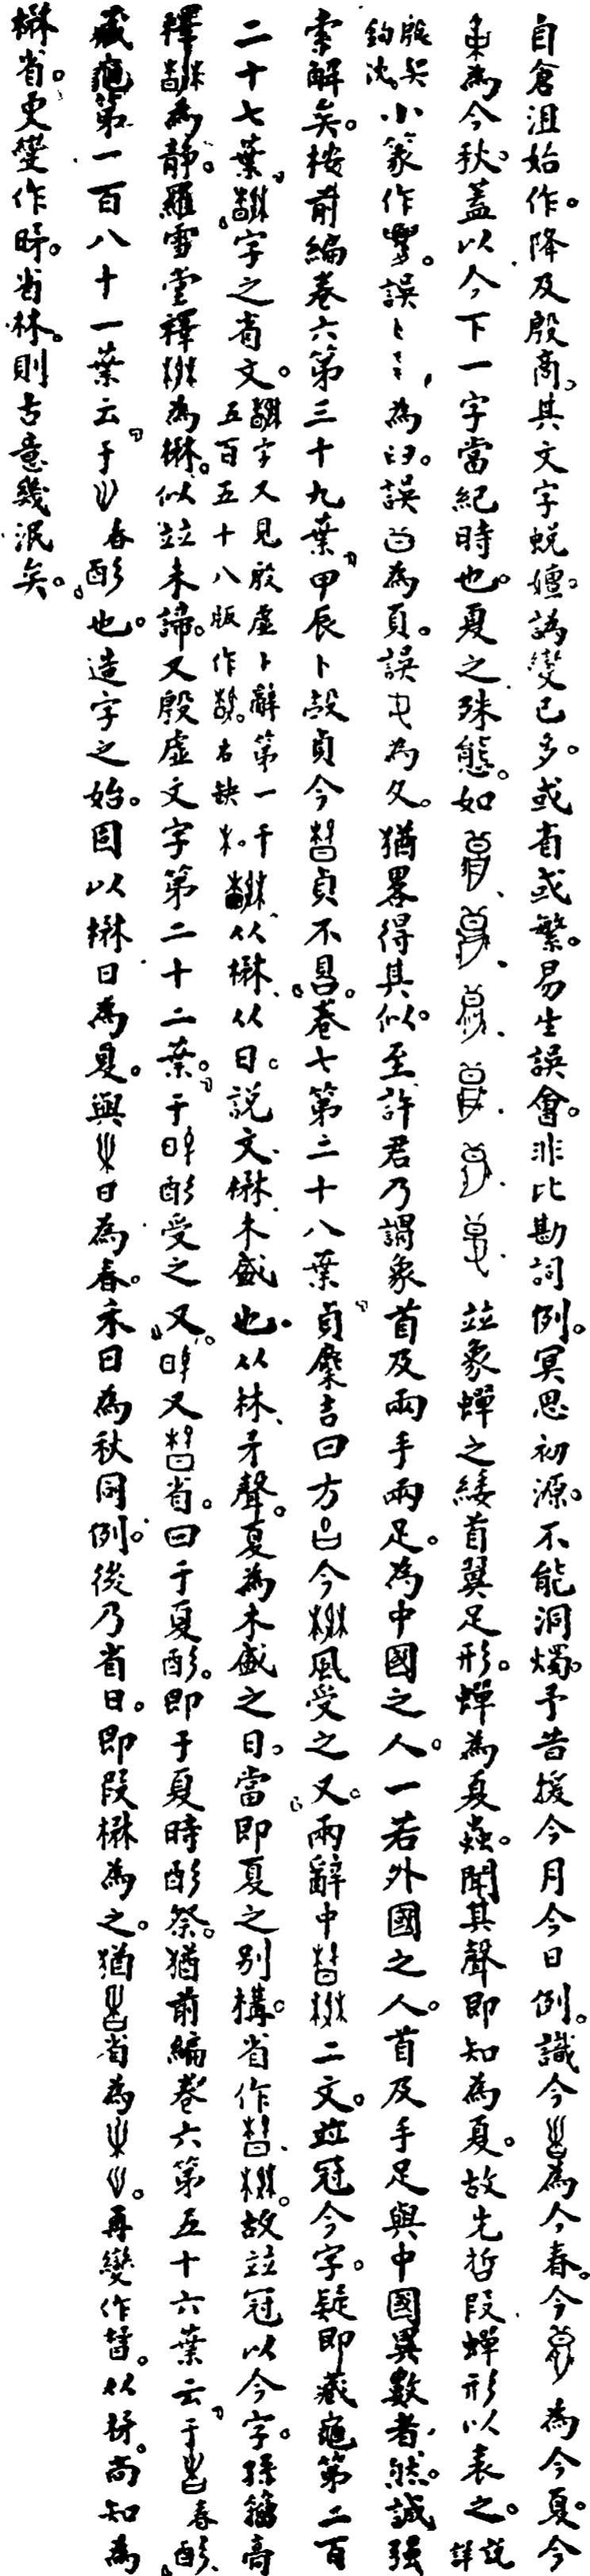 自倉沮始作。降及殷商。其文字蛻嬗。譌變已多。或省或繁。易生誤會。非比勘詞例。冥思初源。不能洞燭。予告援今月今日例。識今為今春。今為今夏。今
為今秋。蓋以今下一字當紀時也。夏之殊態。如 並象蟬之緌首翼足形。蟬為夏蟲。聞其聲即知為夏。故先哲叚蟬形以表之。詳說
殷契鉤沈。小篆作。誤為臼。誤為頁。誤為夂。猶畧得其似。至許君乃謂象首及兩手兩足。為中國之人。一若外國之人。首及手足與中國異數者然。誠強
索解矣。桉前編卷六第三十九葉。甲辰卜㱿貞今貞不。卷七第二十八葉貞吉曰方今風受之又。兩辭中二文。並冠今字。疑即藏龜第二百
二十七葉。字之省文。字又見殷虛卜辭第一千五百五十八版作。右缺木。从楙从日。說文楙木盛也。从林矛聲。夏為木盛之日。當即夏之別構。省作。故並冠以今字。孫籀高
釋為靜。羅雪堂釋為楙。似並未諦。又殷虛文字第二十二葉。于酌受之又。又省。曰于夏酌。即于夏時酌祭。猶前編卷六第五十六葉云于春酌。
藏龜第一百八十一葉云于春酌也。造字之始。固以楙日為夏。與日為春。禾日為秋同例。後乃省日。即叚楙為之。猶省為。再變作。从。尚知為
楙省。更變作。省林。則古意幾泯矣。